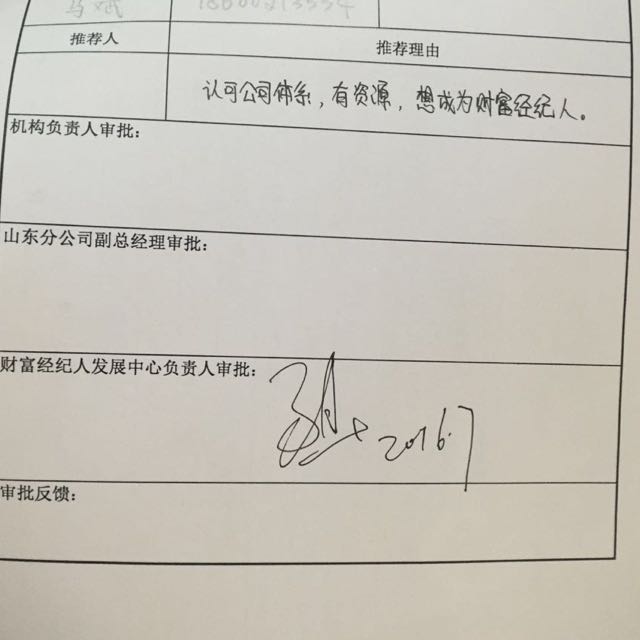 马斌
推荐人 推荐理由
认可公司体系，有资源，想成为财富经纪人。
机构负责人审批：
山东分公司副总经理审批：
财富经纪人发展中心负责人审批：
2016.7
审批反馈：